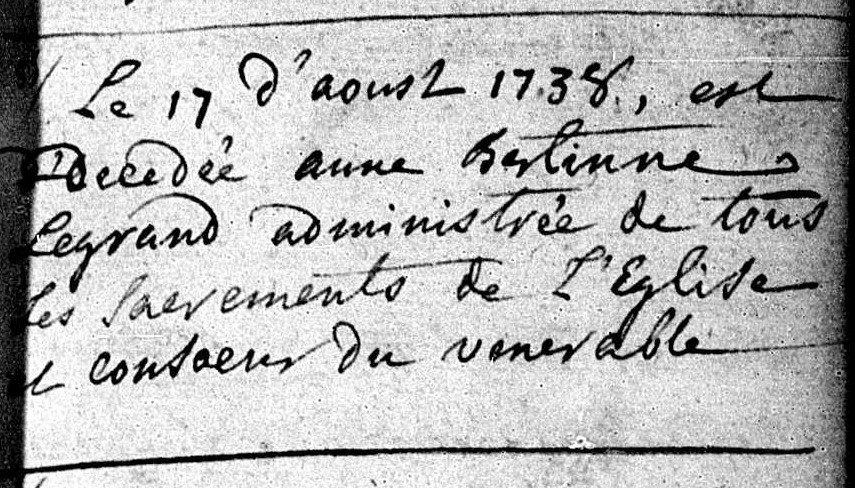 Le 17 d'aoust 1738, est
Decedée anne Bertinne
Legrand administrée de tous
les sacrements de L'Eglise
et consoeur du venerable